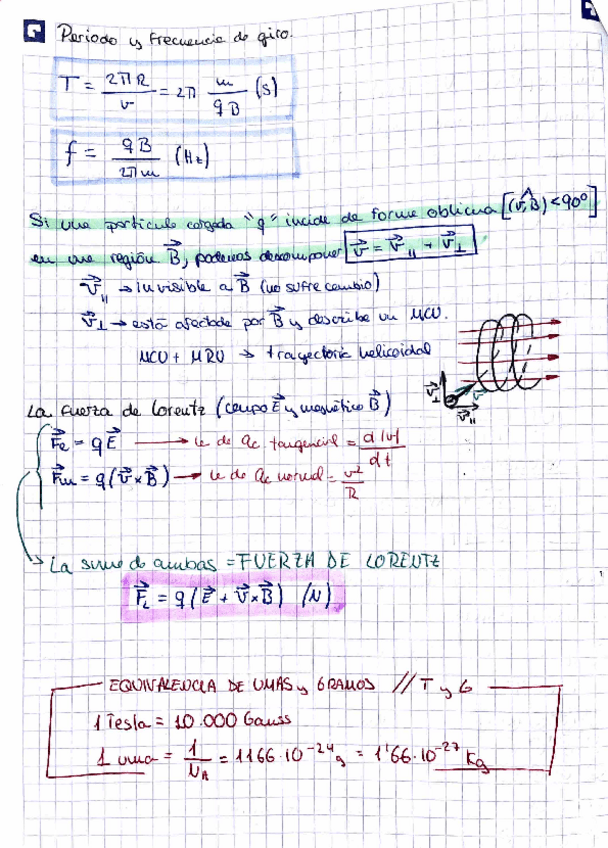 Periodo y frecuencia de giro.
T = 2πR / v = 2π m / qB (s)
f = qB / 2πm (Hz)
Si una partícula cargada "q" incide de forma oblicua [(v,B) < 90º]
en una región B⃗, podemos descomponer v⃗ = v⃗∥ + v⃗⊥
v⃗∥ → invisible a B⃗ (no sufre cambio)
v⃗⊥ → está afectada por B⃗ y describe un MCU.
MCU + MRU → trayectoria helicoidal
v⃗⊥ v⃗ v⃗∥
La fuerza de Lorentz (campo E⃗ y magnético B⃗)
F⃗e = qE⃗ → le da ac tangencial = d|v| / dt
F⃗m = q(v⃗×B⃗) → le da ac normal = v² / R
La suma de ambas = FUERZA DE LORENTZ
F⃗L = q(E⃗ + v⃗×B⃗) (N)
EQUIVALENCIA DE UMAS y GRAMOS // T y G
1 Tesla = 10.000 Gauss
1 uma = 1 / NA = 1'66·10⁻²⁴ g = 1'66·10⁻²⁷ Kg